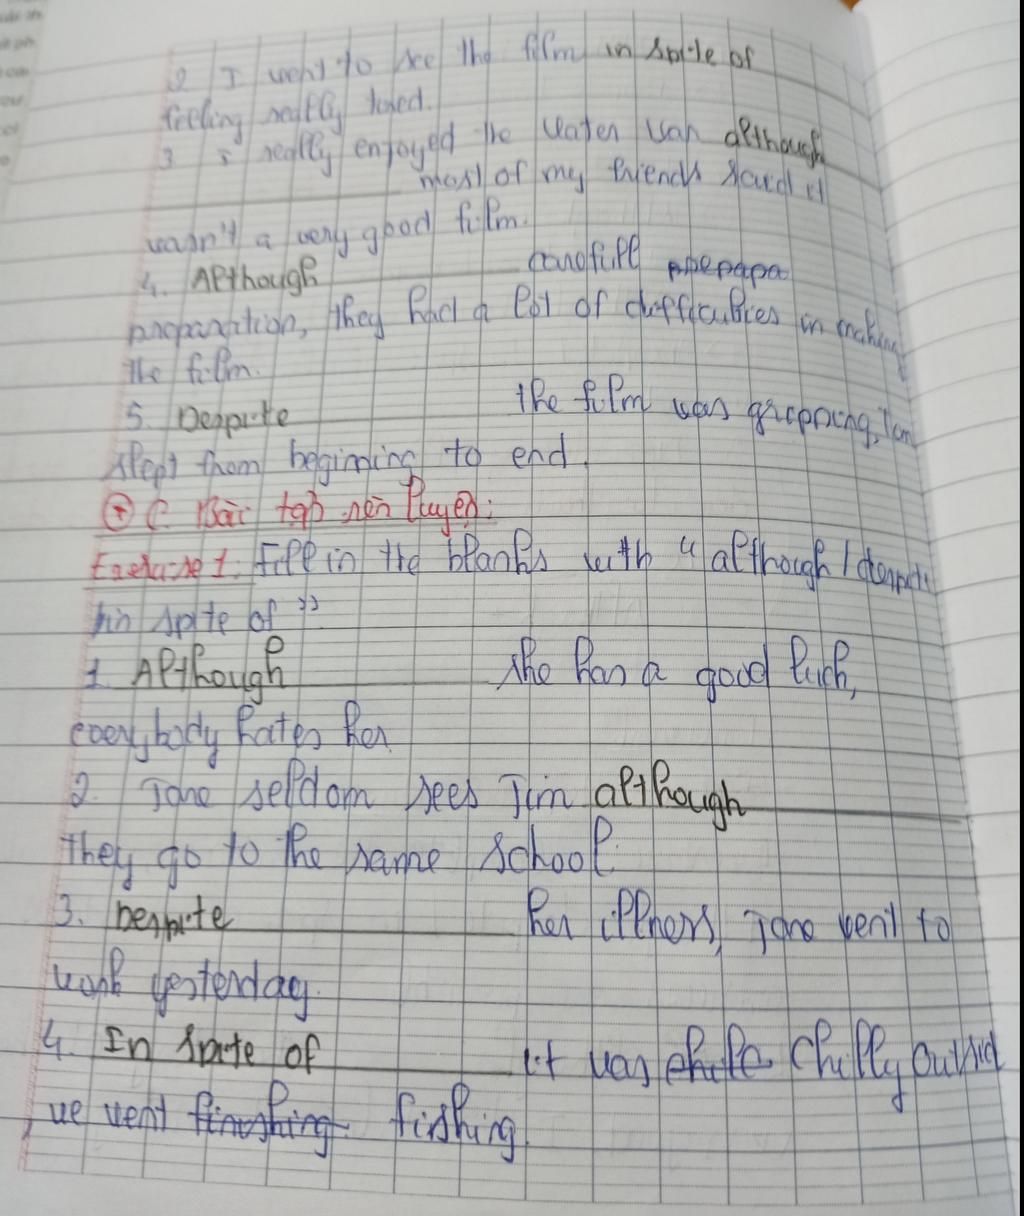 2 I went to see the film in spite of
feeling really tired.
3 I really enjoyed the Water War although
most of my friends said it
wasn't a very good film.
4. Although careful
preparation, they had a lot of difficulties in making
the film.
5. Despite the film was gripping, Tom
slept from beginning to end.
+ C. Bài tập rèn luyện:
Exercise 1: Fill in the blanks with "although / despite
in spite of"
1. Although she has a good luck,
everybody hates her
2. Jane seldom sees Jim although
they go to the same school.
3. Despite her illness, Jane went to
work yesterday.
4. In spite of it was chilly outsid
we went fishing